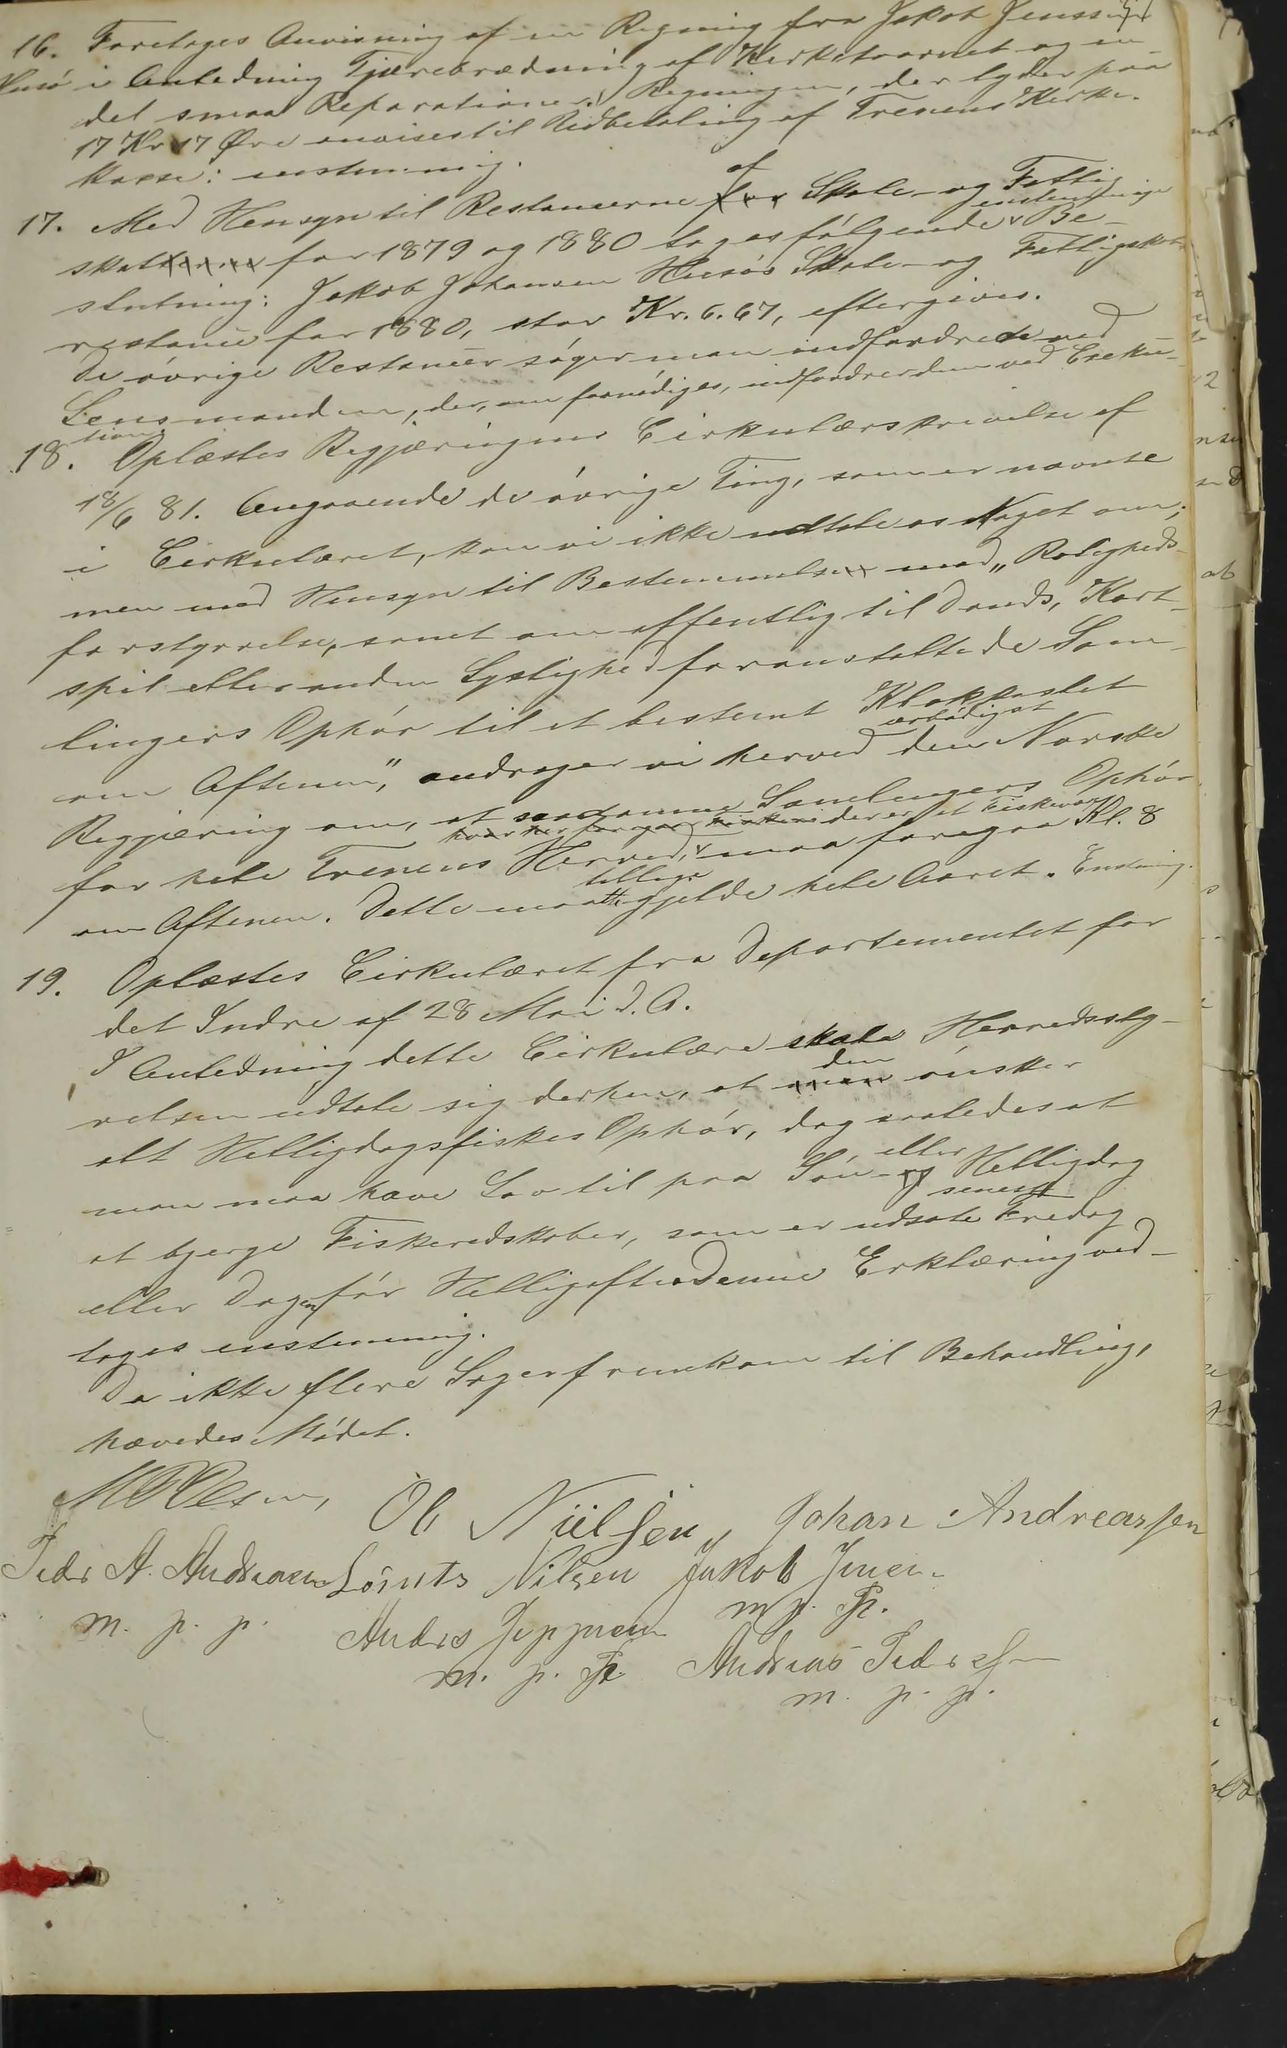 16. Foretoges Anvisning af en Regning fra Jakob Jenssen
Husø i Anledning Tjærebrædning af Kirketaarnet og en-
det smaa Reparationer. Regningen, der lyder paa
17 Kr 17 Øre anvises til Udbetaling af Trenens Kirke-
kasse: enstemmig.
17. Med Hensyn til Restancerne af Skole- og Fattig-
skat for 1879 og 1880 toges følgende enstemmige Be-
slutning: Jakob Johansen Husøs Skole- og Fattigskats
restance for 1880, stor Kr. 6.67, eftergives.
De øvrige Restancer søger man indfordrede ved
Lensmanden, der, om fornødiges, indfordrer dem ved Exeku-
tion.
18. Oplæstes Regjæringens Cirkulærskrivelse af
18/6 81. Angaaende de øvrige Ting, som er nævnte
i Cirkulæret, kan vi ikke udtale os Noget om;
men med Hensyn til Bestemmelser mod „Rolígheds-
forstyrrelse, samt om offentlig til Dands, Kort-
spil eller anden Lystighed foranstaltede Sam-
lingers Ophør til et bestemt Klokkeslet
om Aftenen“, andrager vi herved ærbødigst den Norske
Regjæring om, at saadanne Samlingers Ophør
for hele Trenens Herred, der er et Fiskevær maa foregaa Kl. 8
om Aftenen. Dette maatte tillige gjelde hele Aaret. Enstemmig.
19. Oplæstes Cirkulæret fra Departementet for
det Indre af 28 Mai d. A.
I Anledning dette Cirkulære skal Herredssty-
relsen udtale sig derhen, at den ønsker
alt Helligdagsfiskes Ophør, dog saaledes at
man maa have Lov til paa Søn- eller Helligdag
at bjerge Fiskeredskaber, som er udsate senest Fredag
eller Dagen før Helligaften. Denne Erklæring ved-
toges enstemmig.
Da ikke flere Sager fremkom til Behandling,
hævedes Mødet.
Ole Niilsen, Johan Andreassen
Peder A. Andreasen Lorents Nilsen Jakob Jensen
m. p. p. Anders Jeppesen m. p. P.
m. p. P. Andreas Pedersen
m. p. p.